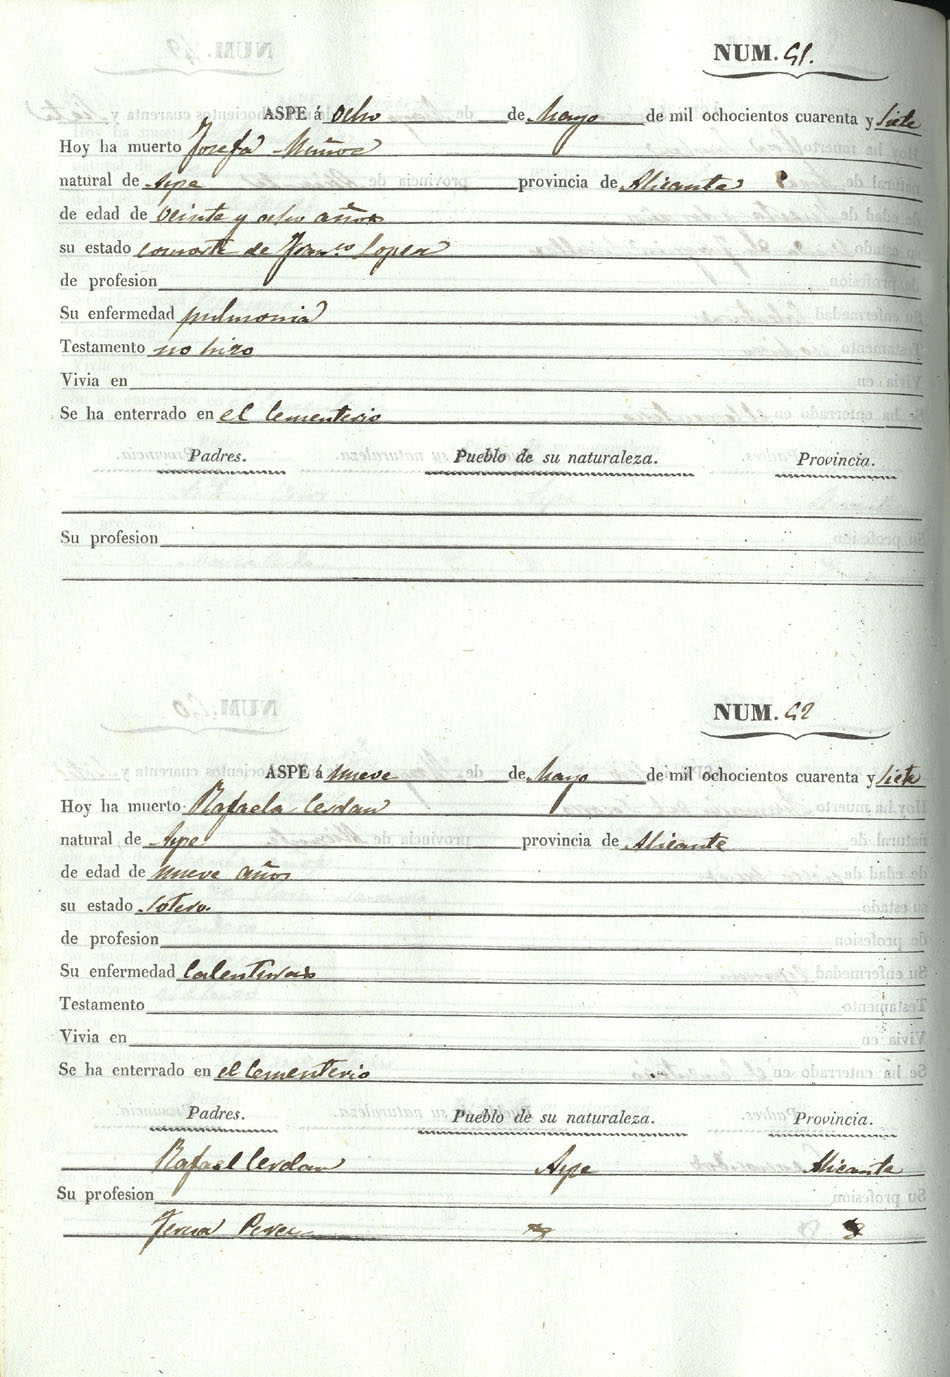 NUM. 51.
ASPE á Ocho de Mayo de mil ochocientos cuarenta y siete
Hoy ha muerto Josefa Muños
natural de Aspe provincia de Alicante
de edad de veinte y ocho años
su estado consorte de Franco Lopez
de profesion
Su enfermedad pulmonia
Testamento no hizo
Vivia en
Se ha enterrado en el Cementerio
Padres. Pueblo de su naturaleza. Provincia.
Su profesion
NUM. 52
ASPE á Nueve de Mayo de mil ochocientos cuarenta y siete
Hoy ha muerto Rafaela Cerdan
natural de Aspe provincia de Alicante
de edad de nueve años
su estado
de profesion
Su enfermedad Calenturas
Testamento
Vivia en
Se ha enterrado en el Cementerio
Padres. Pueblo de su naturaleza. Provincia.
Rafael Cerdan Aspe Alicante
Su profesion
Perez